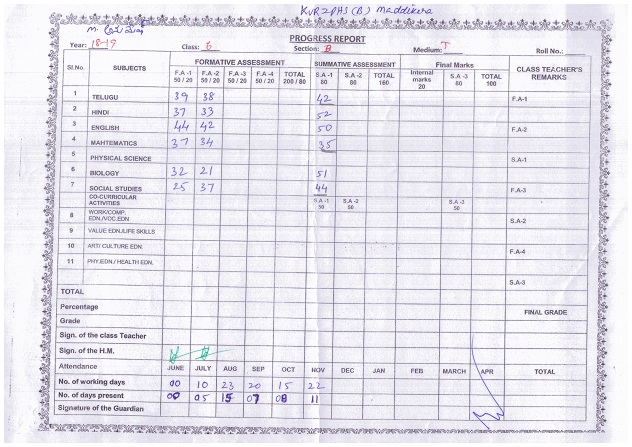 KVR ZPHS (B) Maddikera
PROGRESS REPORT
Year: 18-19 Class: Section: B Medium: T Roll No.:
Sl.No. SUBJECTS FORMATIVE ASSESSMENT SUMMATIVE ASSESSMENT Final Marks CLASS TEACHER'S REMARKS
F.A -1 50 / 20 F.A -2 50 / 20 F.A -3 50 / 20 F.A -4 50 / 20 TOTAL 200 / 80 S.A -1 80 S.A -2 80 TOTAL 160 Internal marks 20 S.A -3 80 TOTAL 100
1 TELUGU 39 38 42 F.A-1
2 HINDI 37 33 52
3 ENGLISH 44 42 50 F.A-2
4 MAHTEMATICS 37 34 35
5 PHYSICAL SCIENCE S.A-1
6 BIOLOGY 32 21 51
7 SOCIAL STUDIES 25 37 44 F.A-3
CO-CURRICULAR ACTIVITIES S.A -1 50 S.A -2 50 S.A -3 50
8 WORK/COMP. EDN./VOC.EDN S.A-2
9 VALUE EDN./LIFE SKILLS
10 ART/ CULTURE EDN. F.A-4
11 PHY.EDN./ HEALTH EDN.
S.A-3
TOTAL
Percentage FINAL GRADE
Grade
Sign. of the class Teacher
Sign. of the H.M.
Attendance JUNE JULY AUG SEP OCT NOV DEC JAN FEB MARCH APR TOTAL
No. of working days 00 10 23 20 15 22
No. of days present 00 05 15 07 08 11
Signature of the Guardian